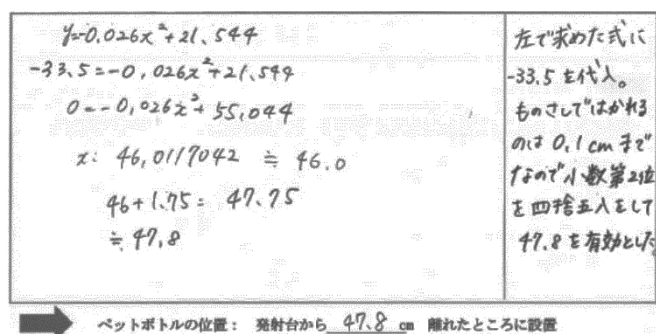 y=-0.026x²+21.544
-33.5=-0.026x²+21.544
0=-0.026x²+55.044
x: 46.0117042 ≒ 46.0
46+1.75= 47.75
≒ 47.8
左で求めた式に
-33.5を代入。
ものさしではかれる
のは 0.1cmまで
なので小数第2位
を四捨五入をして
47.8を有効とした。
ペットボトルの位置： 発射台から 47.8 cm 離れたところに設置